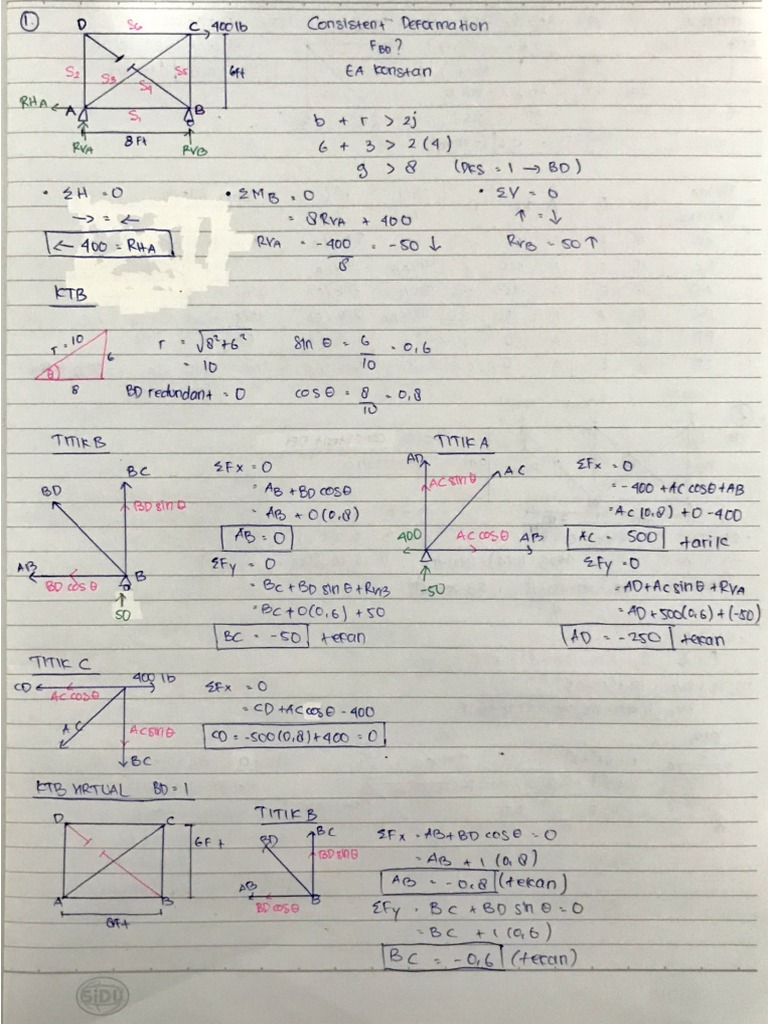 1.
Consistent Deformation
FBD ?
EA konstan
D S6 C 400 lb
S2 S3 S4 S5 6ft
RHA A S1 B
RVA 8 Ft RVB
b + r > 2j
6 + 3 > 2 (4)
9 > 8 (DKS = 1 → BD)
• ΣH = 0
→ = ←
← 400 = RHA
• ΣMB = 0
= 8RVA + 400
RVA = -400/8 = -50 ↓
• ΣV = 0
↑ = ↓
RVB = 50 ↑
KTB
r = 10 6 θ 8
r = √8²+6²
= 10
BD redundant = 0
sin θ = 6/10 = 0,6
cos θ = 8/10 = 0,8
TITIK B
BC
BD BD sin θ
AB BD cos θ B
50
ΣFx = 0
= AB + BD cos θ
= AB + 0(0,8)
AB = 0
ΣFy = 0
= BC + BD sin θ + RVB
= BC + 0(0,6) + 50
BC = -50 tekan
TITIK A
AD AC sin θ AC
400 AC cos θ AB
-50
ΣFx = 0
= -400 + AC cos θ + AB
= AC (0,8) + 0 - 400
AC = 500 tarik
ΣFy = 0
= AD + AC sin θ + RVA
= AD + 500(0,6) + (-50)
AD = -250 tekan
TITIK C
CD 400 lb
AC cos θ
AC AC sin θ
BC
ΣFx = 0
= CD + AC cos θ - 400
CD = -500 (0,8) + 400 = 0
KTB VIRTUAL BD = 1
D C
6 F t
A B
8Ft
TITIK B
BD BC
BD sin θ
AB BD cos θ B
ΣFx = AB + BD cos θ = 0
= AB + 1 (0,8)
AB = -0,8 (tekan)
ΣFy = BC + BD sin θ = 0
= BC + 1 (0,6)
BC = -0,6 (tekan)
SiDU